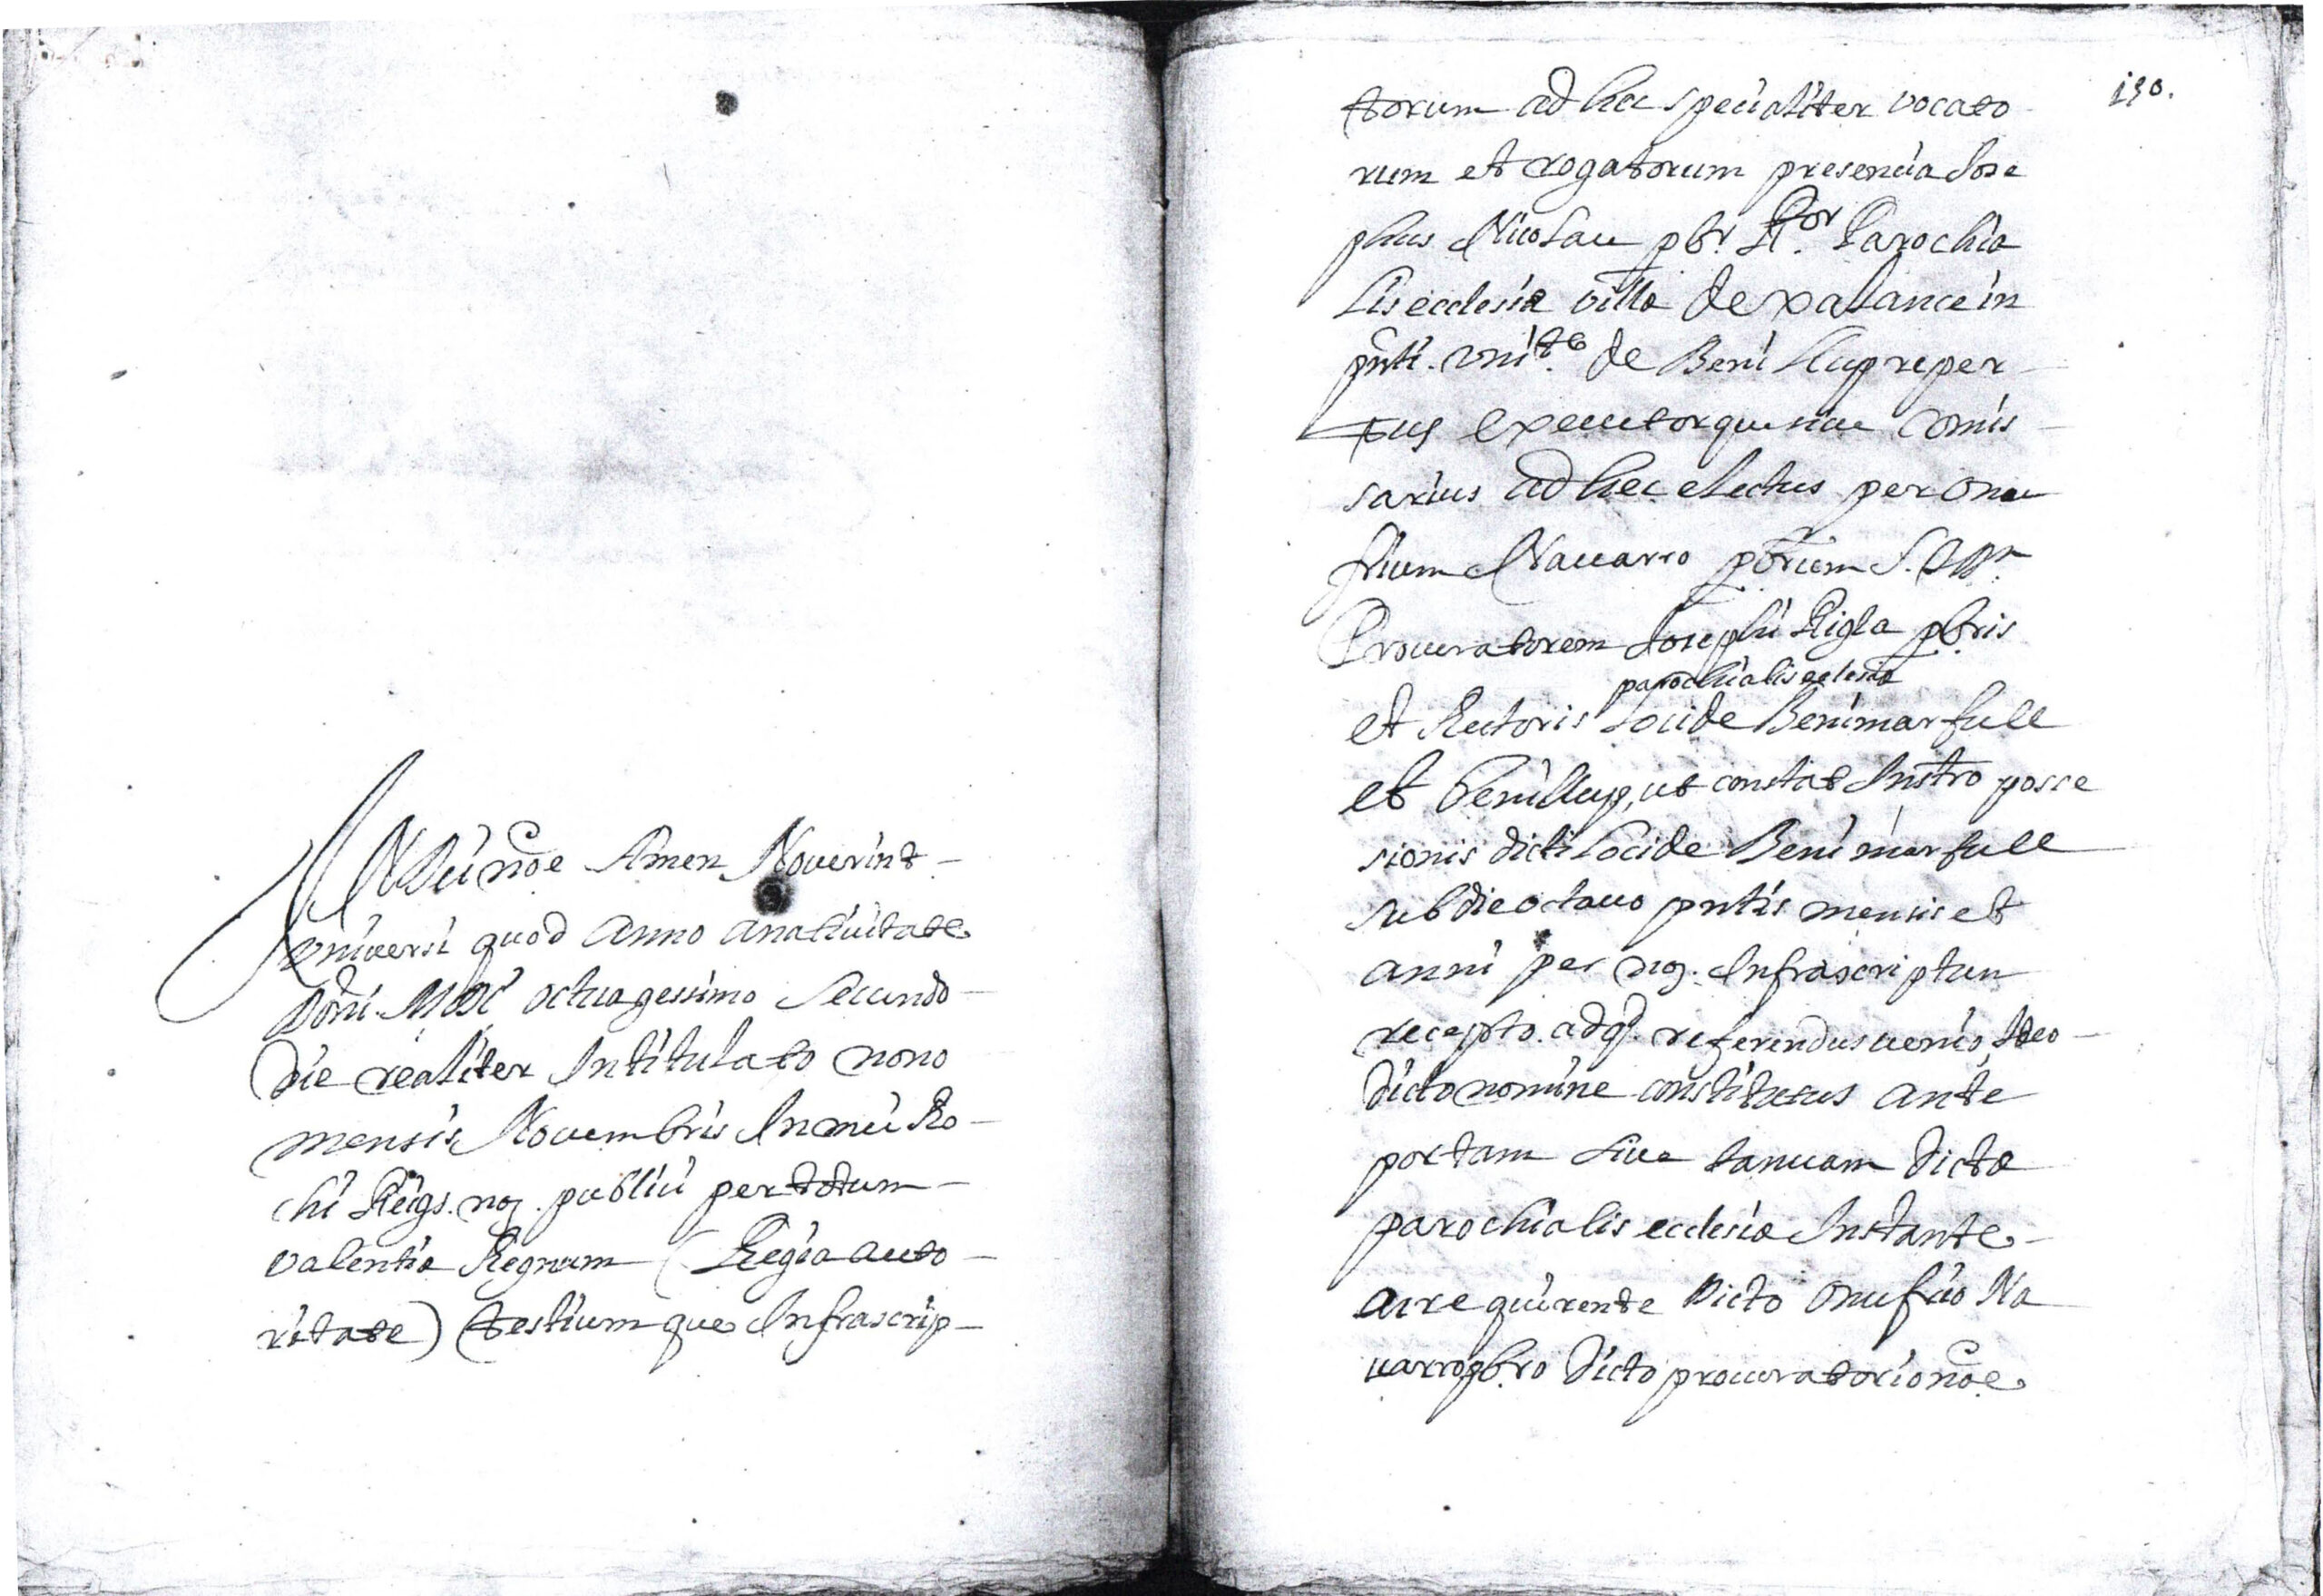 IN Dei noe Amen Noverint
universi quod anno anativitate
Dom̄i MDC octuagessimo secundo
die realiter Intitulato nono
mensis Novembris In mei Ro-
chi Reigs. noț. publici per totum
valentiæ Regnum (Regia aucto-
ritate) testiumque Infrascrip-
130.
torum ad hec specialiter vocato
rum et rogatorum presencia Jose
phus Nicolau pbr. Ror. Parochia
lis ecclesiæ villæ de
pn̄ti. de Benillup reper
tus executorque sive comis
sarius ad hec electus per Onu
frium Navarro pbrum
Procuratorem Josephi Rigla pbris
parochialis eclesiæ
et Rectoris loci de Benimarfull
et Benillup, ut constat Instro posse
sionis dicti loci de Benimarfull
sub die octavo pn̄tis mensis et
anni per noț. Infrascriptum
recepto. ad q̄d. referendus venio, Ideo
dicto nomine constitutus ante
portam sive Ianuam dictæ
parochialis ecclesiæ Instante
ac requirente Dicto Onufrio Na
varro pbro dicto procuratorio noe